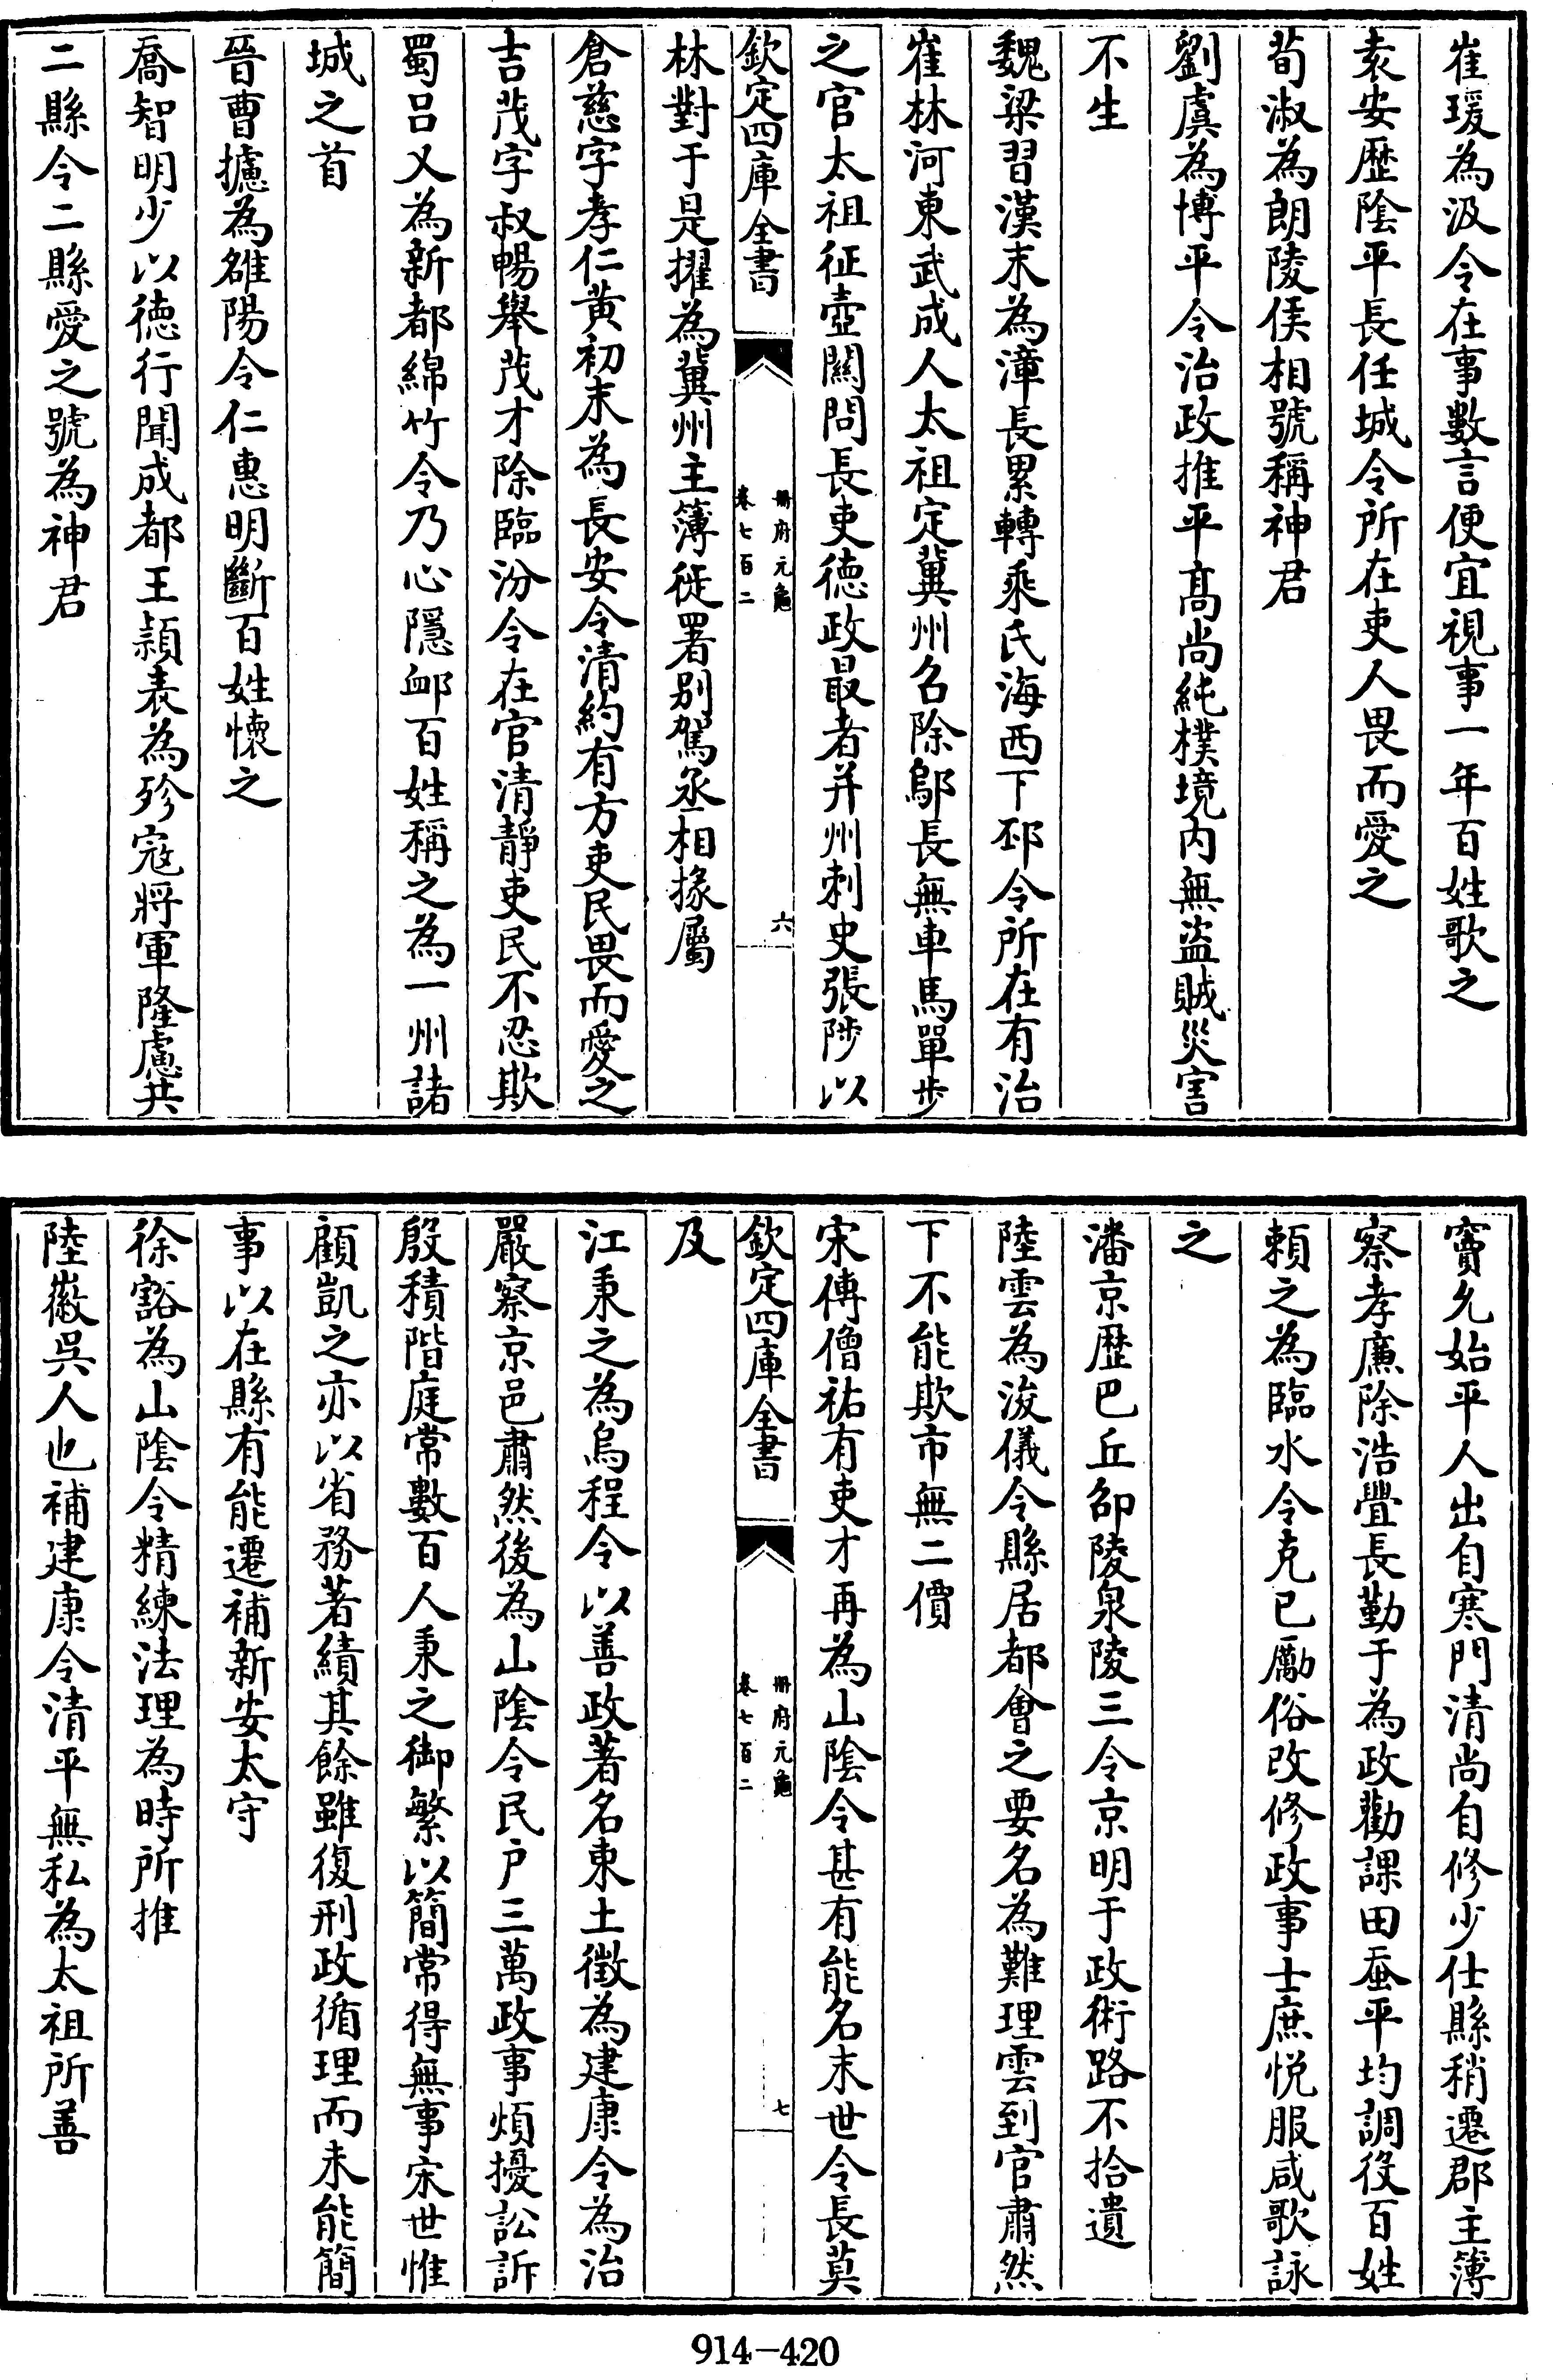 崔瑗為汲令在事數言便宜視事一年百姓歌之
袁安歴陰平長任城令所在吏人畏而愛之
荀淑為朗陵侯相號稱神君
劉虞為博平令治政推平高尚純樸境内無盜賊災害
不生
魏梁習漢末為漳長累轉乘氏海西下邳令所在有治
崔林河東武成人太祖定冀州名除鄔長無車馬單步
之官太祖征壺關問長吏德政最者并州刺史張陟以
欽定四庫全書
冊府元龜
卷七百二
六
林對于是擢為冀州主簿徙署别駕丞相掾屬
倉慈字孝仁黄初末為長安令清約有方吏民畏而愛之
吉茂字叔暢舉茂才除臨汾令在官清靜吏民不忍欺
蜀呂乂為新都綿竹令乃心隱卹百姓稱之為一州諸
城之首
晉曹攄為雒陽令仁惠明斷百姓懷之
喬智明少以德行聞成都王頴表為殄寇將軍隆慮共
二縣令二縣愛之號為神君
竇允始平人出自寒門清尚自修少仕縣稍遷郡主簿
察孝廉除浩亹長勤于為政勸課田蚕平均調役百姓
賴之為臨水令克已勵俗改修政事士庶悅服咸歌詠
之
潘京歴巴丘邵陵泉陵三令京明于政術路不拾遺
陸雲為浚儀令縣居都會之要名為難理雲到官肅然
下不能欺市無二價
宋傅僧祐有吏才再為山陰令甚有能名末世令長莫
欽定四庫全書
冊府元龜
卷七百二
七
及
江秉之為烏程令以善政著名東土徵為建康令為治
嚴察京邑肅然後為山陰令民户三萬政事煩擾訟訴
殷積階庭常數百人秉之御繁以簡常得無事宋世惟
顧凱之亦以省務著績其餘雖復刑政循理而未能簡
事以在縣有能遷補新安太守
徐豁為山陰令精練法理為時所推
陸徽吳人也補建康令清平無私為太祖所善
914-420